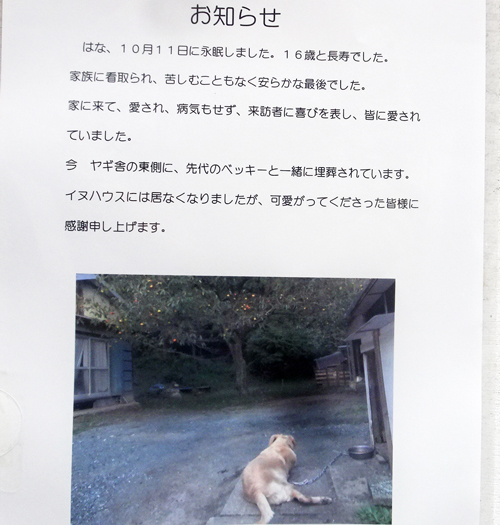 お知らせ
はな、１０月１１日に永眠しました。１６歳と長寿でした。
家族に看取られ、苦しむこともなく安らかな最後でした。
家に来て、愛され、病気もせず、来訪者に喜びを表し、皆に愛され
ていました。
今　ヤギ舎の東側に、先代のベッキーと一緒に埋葬されています。
イヌハウスには居なくなりましたが、可愛がってくださった皆様に
感謝申し上げます。